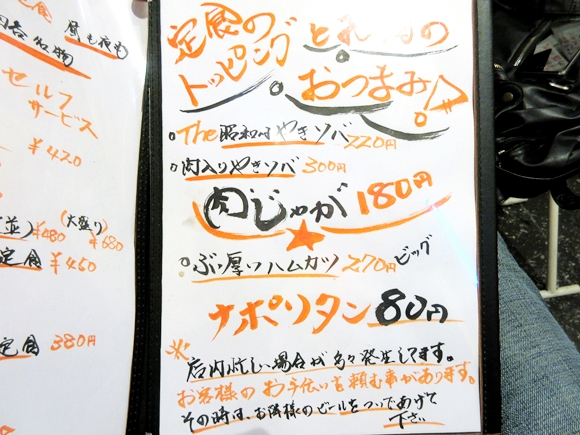 定食
昼も夜も
名物
セルフ
サービス
¥420
(並) ¥480
(大盛り) ¥680
定食 ¥450
定食 380円
定食の
トッピング
とれ
の
おつまみ
The 昭和は やきソバ 220円
肉入りやきソバ 300円
肉じゃが 180円
ぶ厚いハムカツ 270円 ビッグ
ナポリタン 80円
※
店内忙しい場合が多々発生してます。
お客様のお手伝いを頼む事があります。
その時は、お隣様のビールをついであげて
下さい